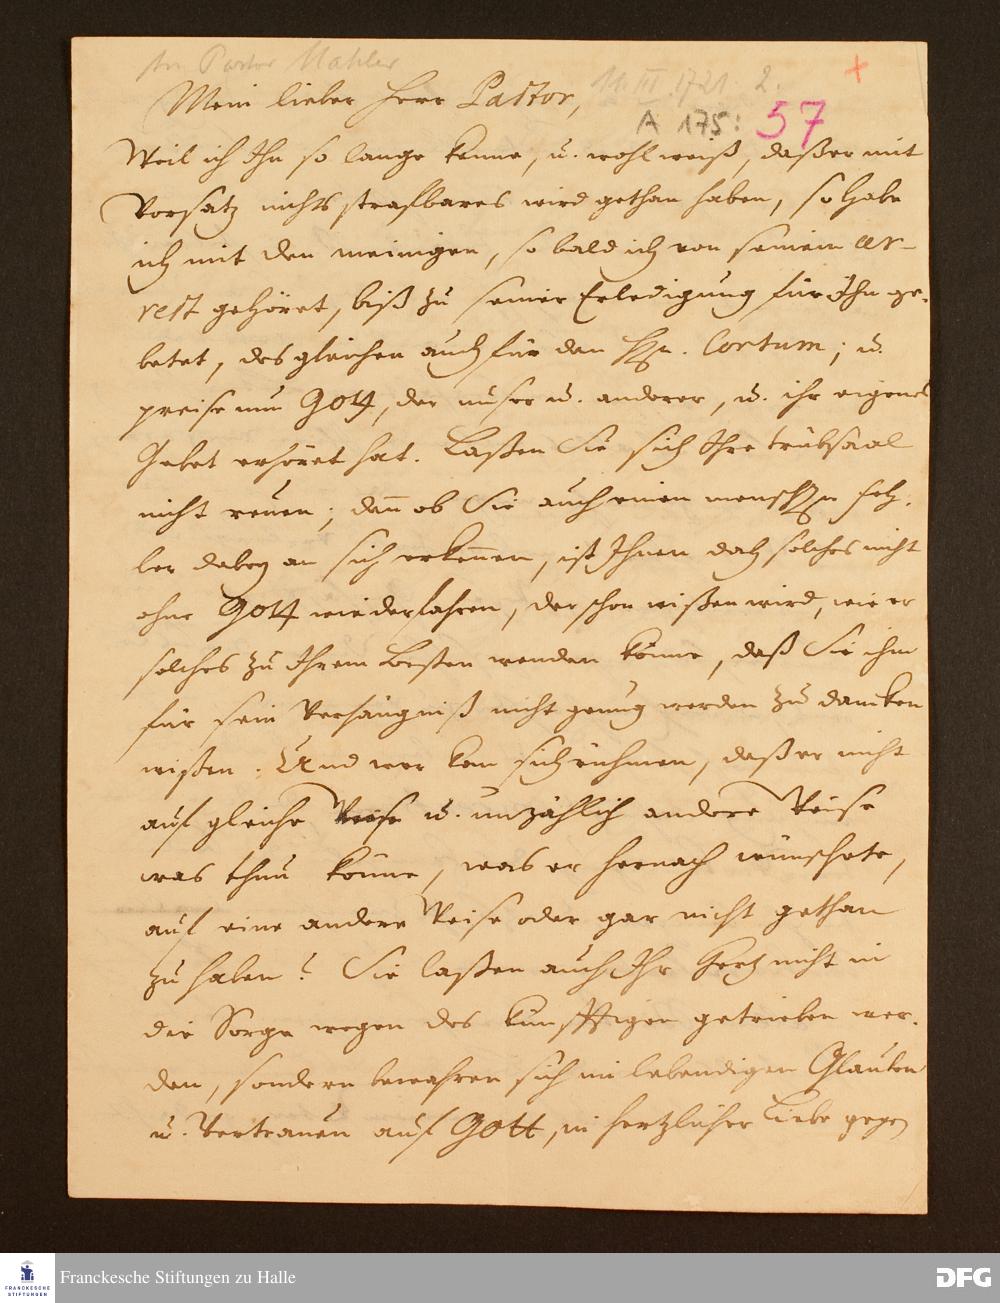 An Pastor Mahler
11. III. 1721. 2.
A 175: 57
Mein lieber Herr Pastor,
Weil ich Ihn so lange kenne, u. wohl weiß, daß er mit
Vorsatz nichts strafbares wird gethan haben, so habe
ich mit den meinigen, so bald ich von seinem Ar-
rest gehöret, biß zu seiner Erledigung für Ihn ge-
betet, desgleichen auch für den Hn. Cortum; u.
preise nun Gott, der unser u. anderer, u. ihr eigenes
Gebet erhöret hat. Laßen Sie sich Ihre trübsaal
nicht reuen; den ob Sie auch einen menschln feh-
ler dabey an sich erkennen, ist Ihnen doch solches nicht
ohne Gott wiederfahren, der schon wißen wird, wie er
solches zu Ihrem Besten wenden könne, daß Sie ihm
für sein Verhängniß nicht genug werden zu dancken
wißen. Und wer kan sich rühmen, daß er nicht
auf gleiche Weise u. unzählich andere Weise
was thun könne, was er hernach wünschete,
auf eine andere Weise oder gar nicht gethan
zu haben? Sie laßen auch Ihr Hertz nicht in
die Sorge wegen des künfftigen getrieben wer-
den, sondern bewahren sich im lebendigen Glauben
u. Vertrauen auf Gott, in hertzlicher Liebe gegen
FRANCKESCHE STIFTUNGEN
Franckesche Stiftungen zu Halle
DFG